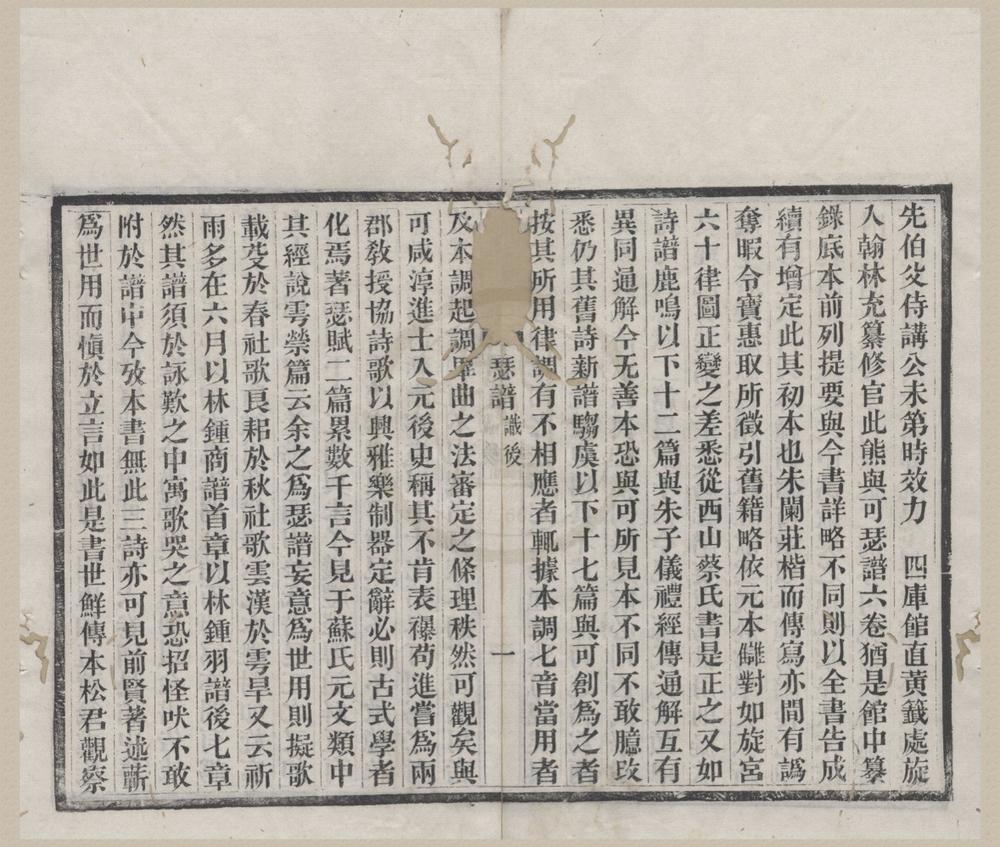 先伯父侍講公未第時效力　四庫館直黄籤處旋
入翰林充纂修官此熊與可瑟譜六卷猶是館中纂
錄底本前列提要與今書詳略不同則以全書告成
續有增定此其初本也朱闌莊楷而傳寫亦間有譌
奪暇令寶惠取所徵引舊籍略依元本讎對如旋宮
六十律圖正變之差悉從西山蔡氏書是正之又如
詩譜鹿鳴以下十二篇與朱子儀禮經傳通解互有
異同通解今无善本恐與可所見本不同不敢臆攷
悉仍其舊詩新譜騶虞以下十七篇與可創爲之者
按其所用律調有不相應者輒據本調七音當用者
瑟譜 識後 一
及本調起調畢曲之法審定之條理秩然可觀矣與
可咸淳進士入元後史稱其不肯表襮苟進嘗爲兩
郡敎授協詩歌以興雅樂制器定辭必則古式學者
化焉著瑟賦二篇累數千言今見于蘇氏元文類中
其經說雩禜篇云余之爲瑟譜妄意爲世用則擬歌
載芟於春社歌良耜於秋社歌雲漢於雩旱又云祈
雨多在六月以林鍾商譜首章以林鍾羽譜後七章
然其譜須於詠歎之中寓歌哭之意恐招怪吠不敢
附於譜中今攷本書無此三詩亦可見前賢著述蘄
爲世用而愼於立言如此是書世鮮傳本松君觀察